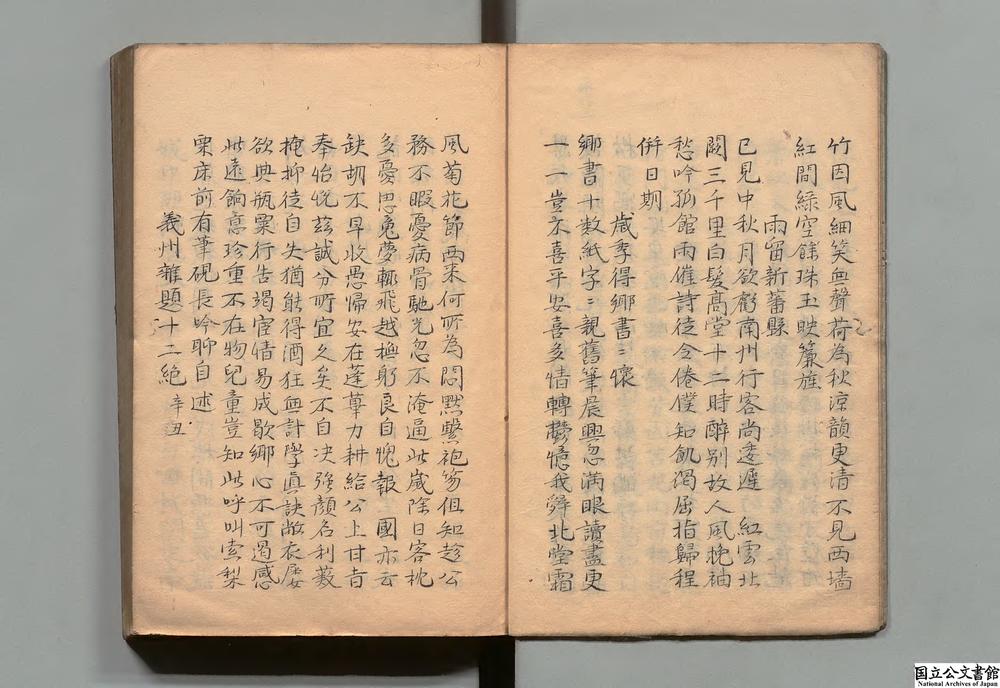 竹因風細笑無聲荷為秋涼韻更清不見西墻
紅間綠空餘珠玉映簾旌
雨留新蕃縣
已見中秋月欲虧南州行客尚逶遲　紅雲北
闕三千里白髮高堂十二時醉別故人風挽袖
愁吟孤館雨催詩徒令倦僕知飢渴屈指歸程
併日期
歲季得鄉書〻懷
鄉書十數紙字〻親舊筆晨興忽滿眼讀盡更
一一豈不喜平安喜多情轉鬱憶我辭北堂霜
風菊花節西來何所為悶默繫袍笏但知趁公
務不暇憂病骨馳光忽不淹逼此歲除日客枕
多憂思兔夢輒飛越撫躬良自愧報　國亦云
缺胡不早收愚歸安在蓬蓽力耕給公上甘旨
奉怡悅茲誠分所宜久矣不自決強顏名利藪
掩抑徒自失猶能得酒狂無計學真訣敝衣屢
欲典瓶粟行告竭宦情易成歇鄉心不可遏感
此遠餉意珍重不在物兒童豈知此呼叫索梨
栗床前有筆硯長吟聊自述
義州雜題十二絕 辛丑
国立公文書館
National Archives of Japan